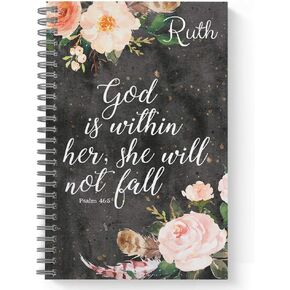 Ruth
God
is within
her, she will
not fall
Psalm 46:5